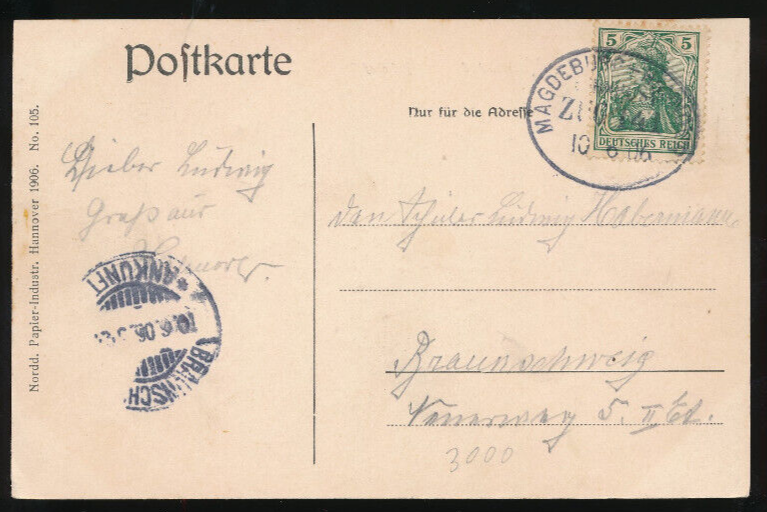 Postkarte
Nur für die Adresse
5 5
DEUTSCHES REICH
MAGDEBURG
ZUG
10 6 06
Nordd. Papier-Industr. Hannover 1906. No. 105.
Lieber Ludwig
Gruß aus
ANKUNFT
10.6.06.
BRAUNSCH
den Schüler Ludwig Habermann
Braunschweig
5. II Et.
3000